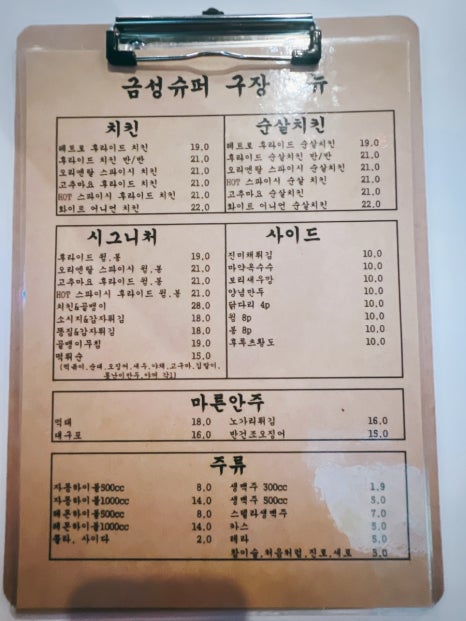 금성슈퍼 구장 뉴
치킨
레트로 후라이드 치킨 19.0
후라이드 치킨 반/반 21.0
오리엔탈 스파이시 치킨 21.0
고추마요 후라이드 치킨 21.0
HOT 스파이시 후라이드 치킨 21.0
화이트 어니언 치킨 22.0
순살치킨
레트로 후라이드 순살치킨 19.0
후라이드 순살치킨 반/반 21.0
오리엔탈 스파이시 순살치킨 21.0
고추마요 후라이드 순살치킨 21.0
HOT 스파이시 순살 치킨 21.0
화이트 어니언 순살치킨 22.0
시그니처
후라이드 윙,봉 19.0
오리엔탈 스파이시 윙,봉 21.0
고추마요 후라이드 윙,봉 21.0
HOT 스파이시 후라이드 윙,봉 21.0
치킨&골뱅이 28.0
소시지&감자튀김 18.0
똥집&감자튀김 18.0
골뱅이무침 19.0
떡튀순 15.0
(떡볶이,순대,오징어,새우,야채,고구마,김말이,
못난이만두,야채 각1)
사이드
진미채튀김 10.0
마약옥수수 10.0
보리새우깡 10.0
양념만두 10.0
닭다리 4p 10.0
윙 8p 10.0
봉 8p 10.0
후룻츠황도 10.0
마른안주
먹태 18.0
대구포 16.0
노가리튀김 16.0
반건조오징어 15.0
주류
자몽하이볼500cc 8.0
자몽하이볼1000cc 14.0
레몬하이볼500cc 8.0
레몬하이볼1000cc 14.0
콜라, 사이다 2.0
생맥주 300cc 1.9
생맥주 500cc 3.0
스텔라생맥주 7.0
카스 5.0
테라 5.0
참이슬,처음처럼,진로,새로 5.0